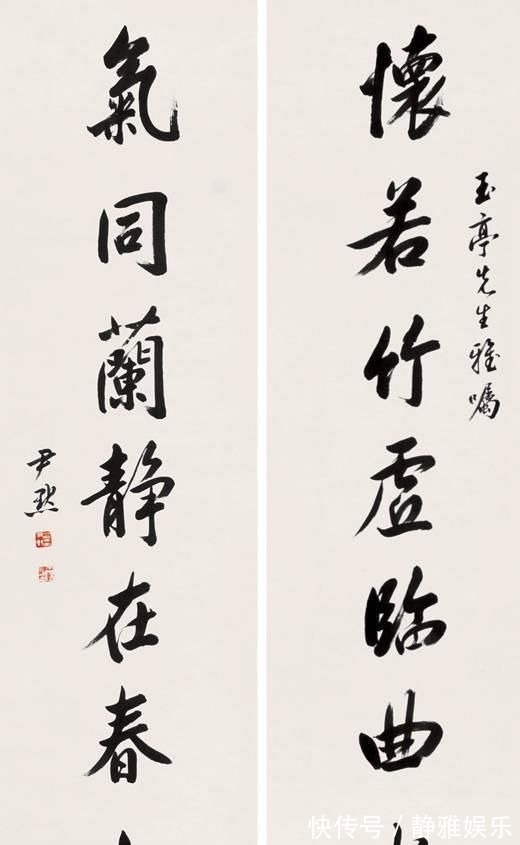 玉亭先生雅嘱
懷若竹虛臨曲
氣同蘭静在春
尹默
快传号/静雅娱乐